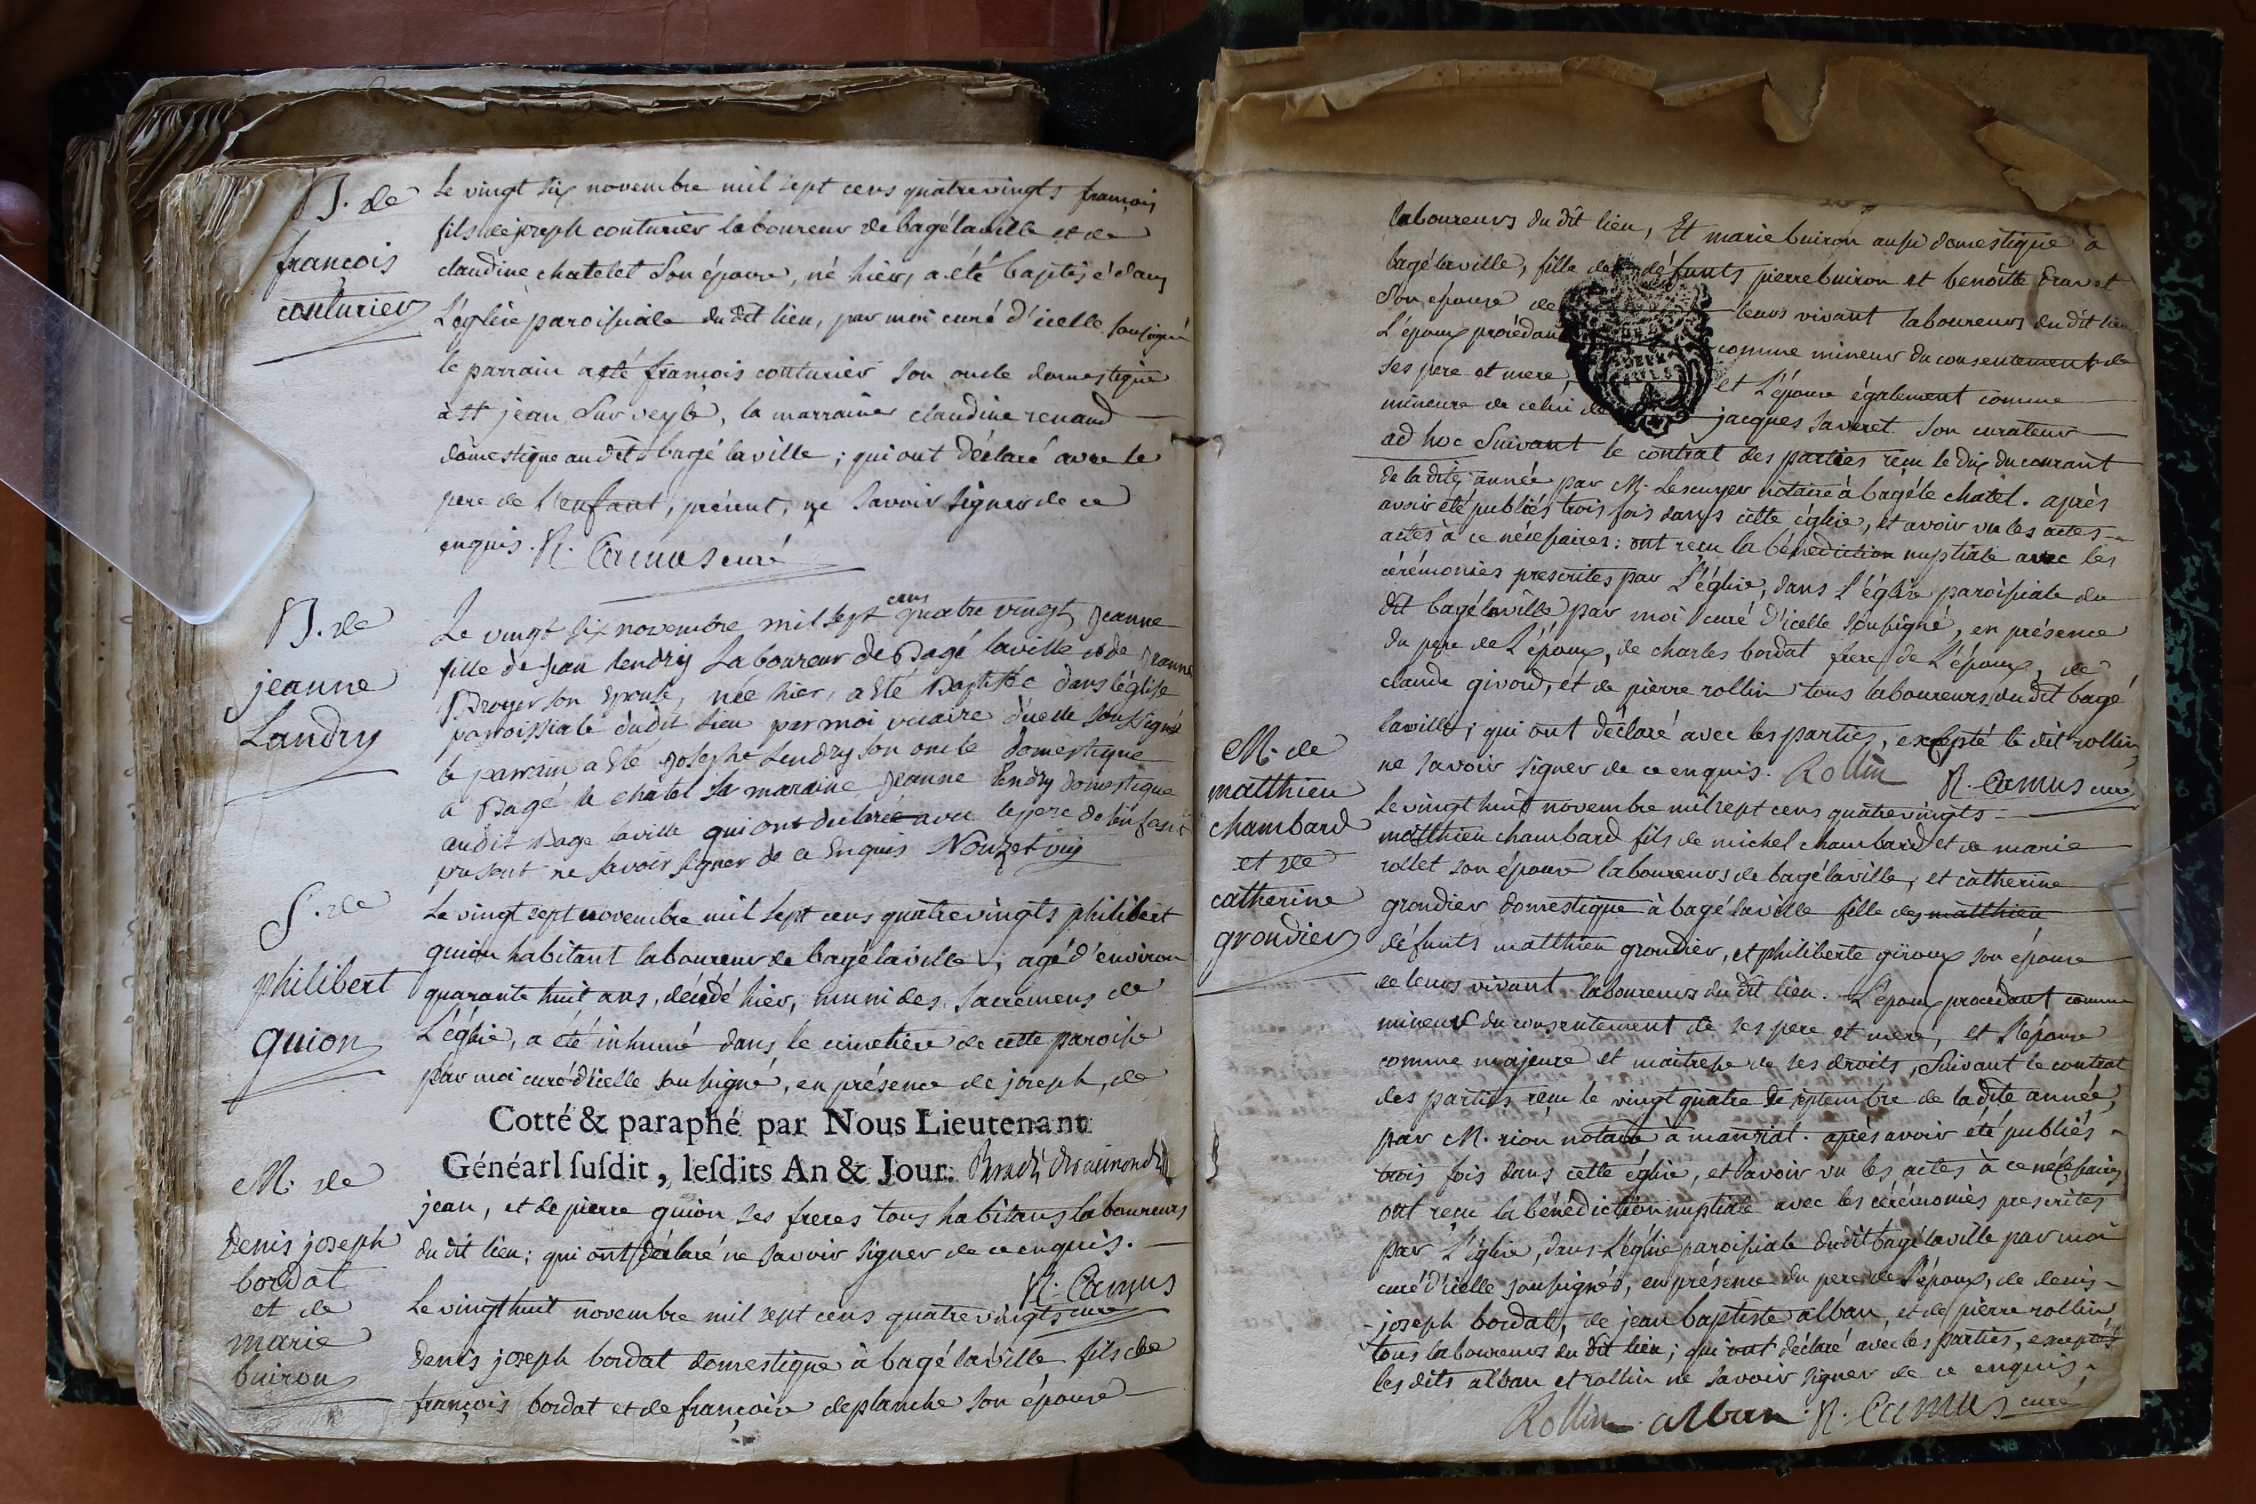 B. de
françois
couturier
Le vingt six novembre mil sept cens quatrevingts françois
fils de joseph couturier laboureur de bagé laville et de
claudine chatelet son épouse, né hier, a été baptisé dans
L'église paroissiale du dit lieu, par moi curé d'icelle soussigné
le parrain a été françois couturier son oncle domestique
à st jean sur veyle, la marraine claudine renaud
domestique au dit bagé laville; qui ont déclaré avec le
pere de l'enfant, présent, ne savoir signer de ce
enquis. N. Camus curé
B. de
jeanne
Landry
Le vingt six novembre mil sept cens quatre vingt, Jeanne
fille de Jean Lendry Laboureur de Bagé laville et de Jeanne
Broyer son Epouse, née hier, a Eté Baptisée dans léglise
paroissiale dudit lieu par moi vicaire d'icelle soussigné
le parrain a Eté Josephe Lendry son oncle domestique
a Bagé le chatel la maraine Jeanne Lendry domestique
audit Bage laville qui ont declaré avec le pere de lenfant
present ne savoir signer de ce Enquis Nouzet vic
S. de
philibert
guion
Le vingt sept novembre mil sept cens quatrevingts philibert
guion habitant laboureur de bagé laville, agé d'environ
quarante huit ans, décédé hier, muni des sacremens de
L'église, a été inhumé dans le cimetière de cette paroisse
par moi curé d'icelle soussigné, en présence de joseph, de
Cotté & paraphé par Nous Lieutenant
Généarl ſuſdit, leſdits An & Jour.
jean, et de pierre guion ses freres tous habitans laboureurs
du dit lieu; qui ont déclaré ne savoir signer de ce enquis.
N. Camus
curé
M. de
denis joseph
bordat
et de
marie
buiron
Le vingt huit novembre mil sept cens quatrevingts
denis joseph bordat domestique à bagé laville fils de
françois bordat et de françoise deplanche son épouse
laboureurs du dit lieu, Et marie buiron aussi domestique à
bagé laville, fille de défunts pierre buiron et benoitte
son epouse de leurs vivant laboureurs du dit lieu
L'époux procédant comme mineur du consentement de
ses pere et mere, et L'épouse également comme
mineure de celui de jacques saveret son curateur
ad hoc suivant le contrat des parties reçu le dix du courant
de la dite année par M. Lescuyer notaire à bagé le chatel. après
avoir été publiés trois fois dans cette église, et avoir vu les actes
actes à ce nécessaires: ont reçu la bénédiction nuptiale avec les
cérémonies prescrites par L'église, dans L'église paroissiale du
dit bagé laville par moi curé d'icelle soussigné, en présence
du pere de L'époux, de charles bordat frere de L'époux, de
claude givord, et de pierre rollin tous laboureurs du dit bagé
laville; qui ont déclaré avec les parties, excepté le dit rollin,
ne savoir signer de ce enquis. Rollin N. Camus curé
M. de
matthieu
chambard
et de
catherine
grondier
Le vingt huit novembre mil sept cens quatrevingts
matthieu chambard fils de michel chambard et de marie
rollet son épouse laboureurs de bagé laville, et catherine
grondier domestique à bagé laville fille des matthieu
défunts matthieu grondier, et philiberte giroux son épouse
de leurs vivant laboureurs du dit lieu. L'époux procédant comme
mineur du consentement de ses pere et mere, et L'épouse
comme majeure et maitresse de ses droits, suivant le contrat
des parties reçu le vingt quatre septembre de la dite année,
par M. rion notaire à manziat. après avoir été publiés
trois fois dans cette église, et avoir vu les actes à ce nécessaires
ont reçu la bénédiction nuptiale avec les cérémonies prescrites
par L'église, dans L'église paroissiale du dit bagé laville par moi
curé d'icelle soussigné, en présence du pere de L'époux, de denis
joseph bordat, de jean baptiste alban, et de pierre rollin
tous laboureurs du dit lieu; qui ont déclaré avec les parties, excepté
les dits alban et rollin ne savoir signer de ce enquis.
Rollin alban N. Camus curé